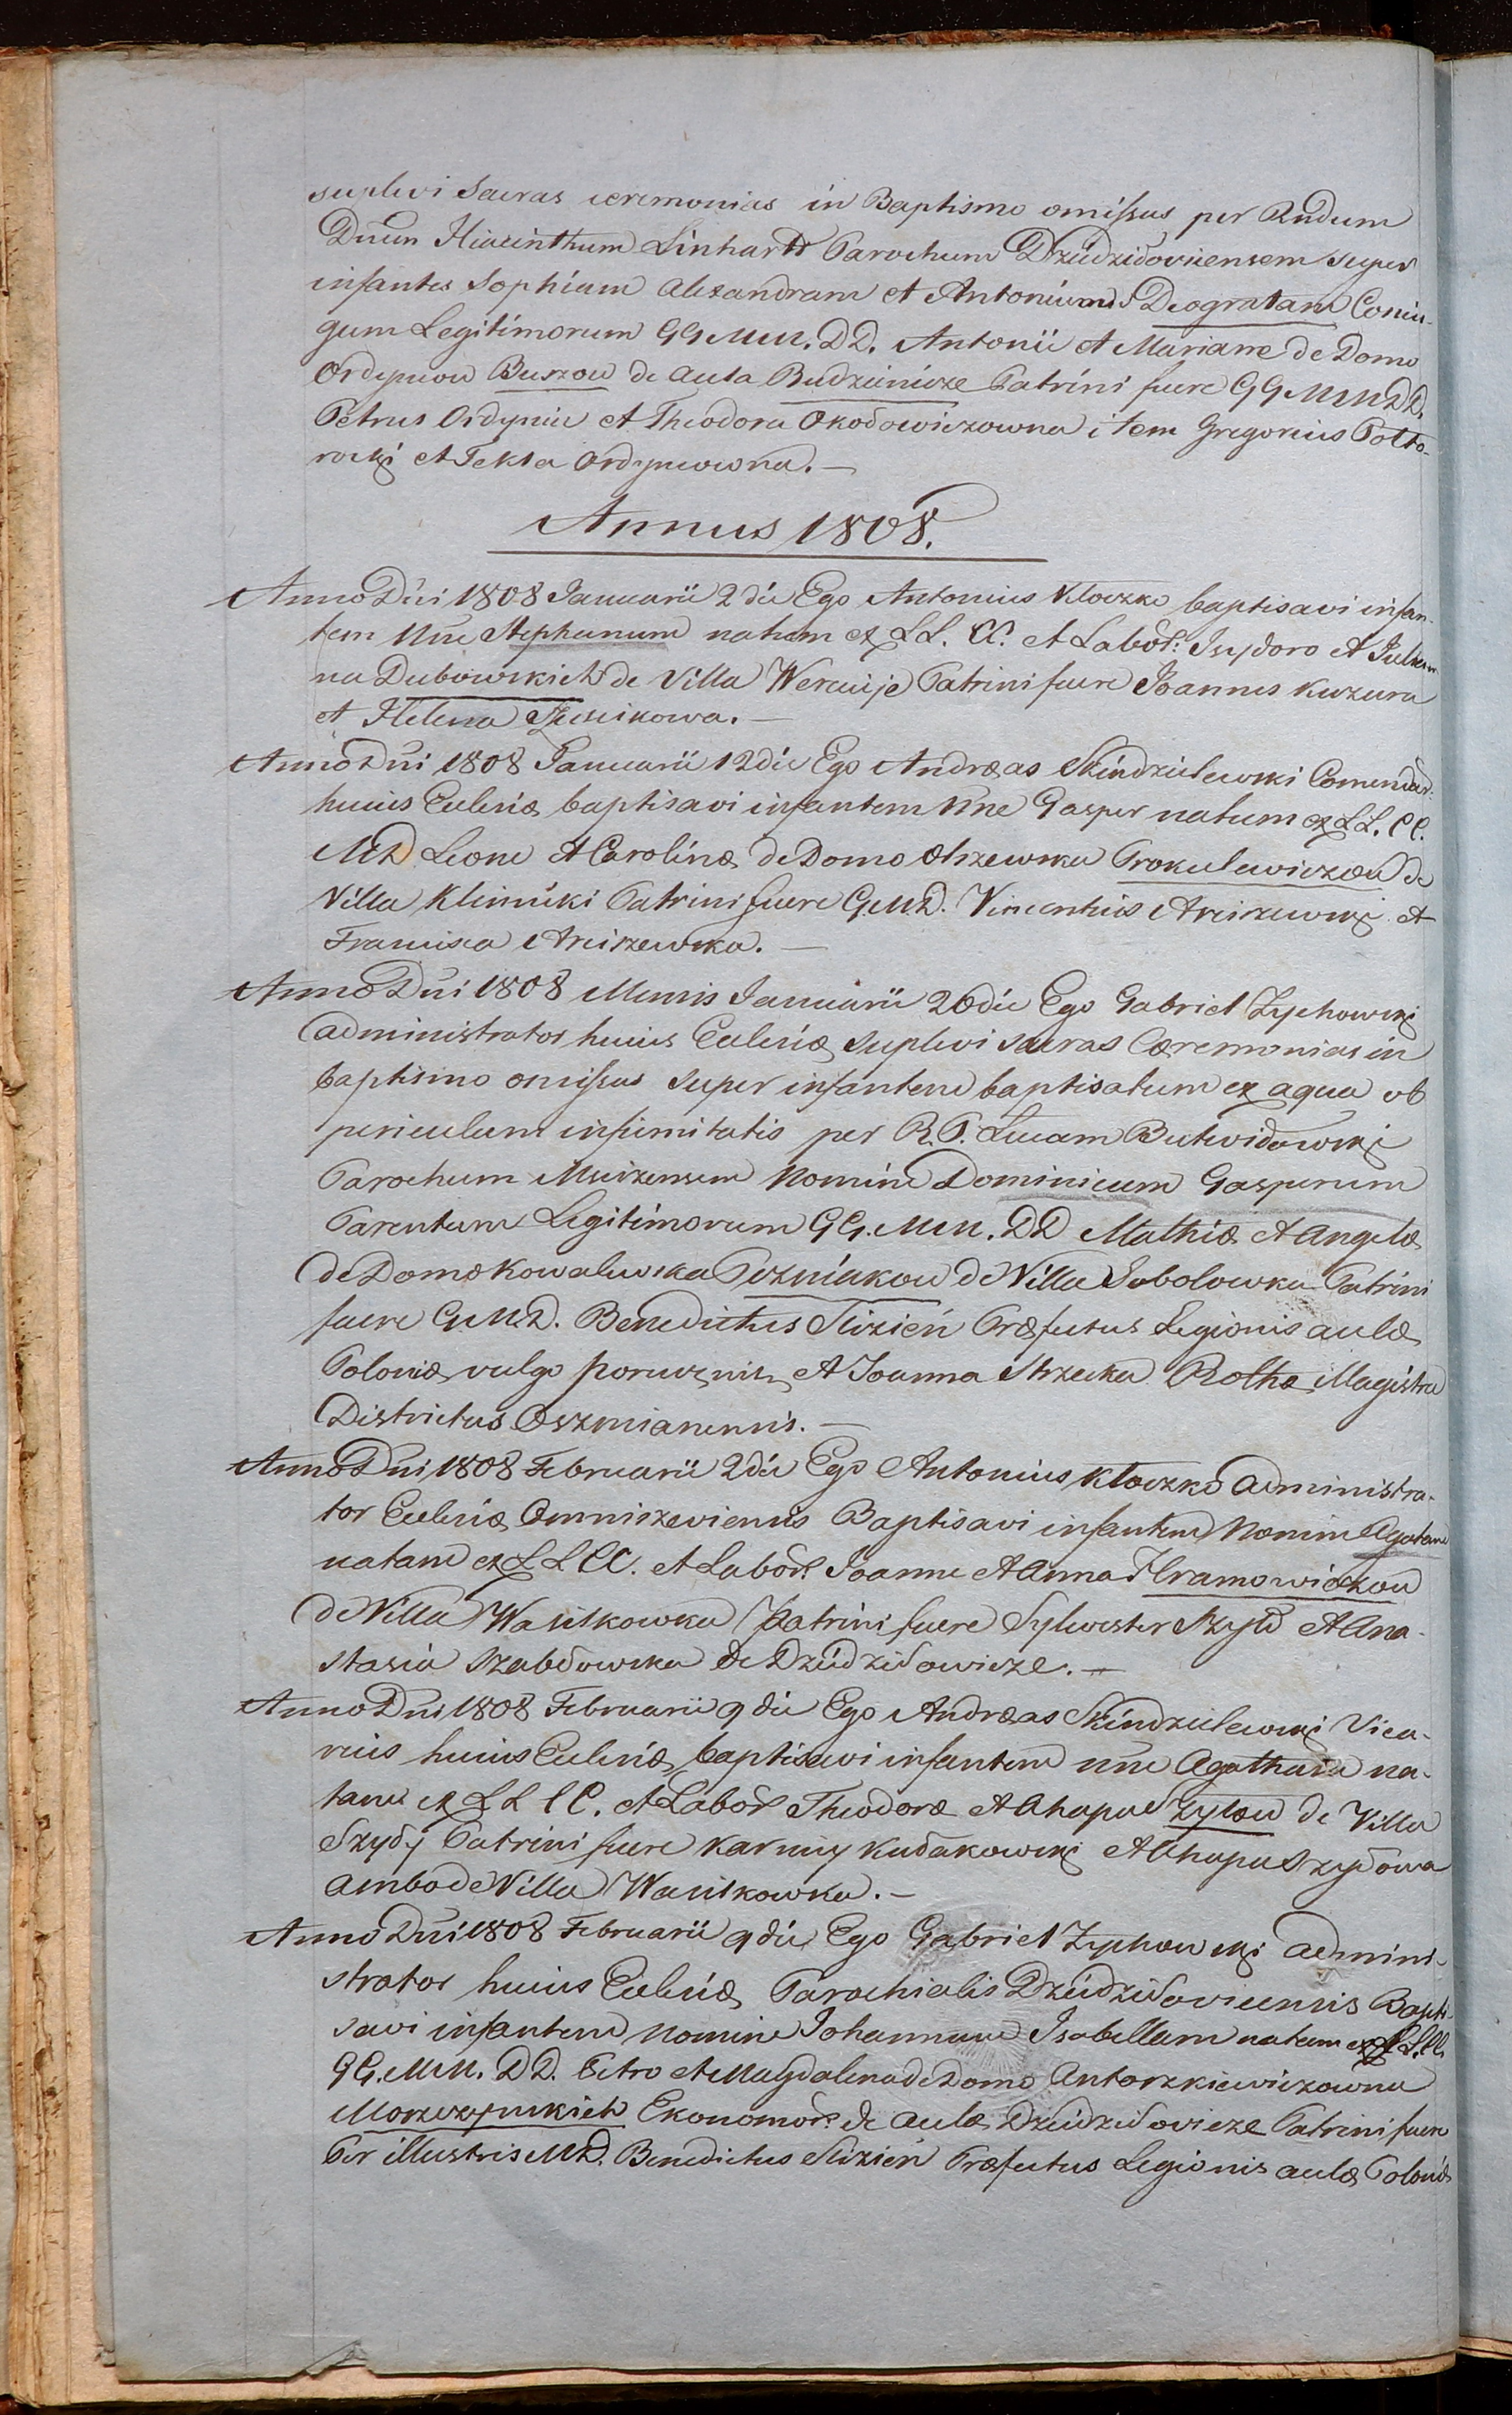 suplevi Sacras ceremonias in Baptismo omissas per Rndum
Dnum Hiacinthum Linhart Parochum Dziedziłovicensem super
infantes Sophiam Alexandram et Antonium Deogratam Coniu-
gum Legitimorum GG MM. DD. Antonii et Marianne de Domo
Ordyncow Buszow de Aula Budzienicze Patrini fuere GG MM DD.
Petrus Ordyniec et Theodora Okołowiczowna item Gregorius Połto-
racki et Tekla Ordyncowna.—
Annus 1808.
Anno Dni 1808 Januarii 2 die Ego Antonius Kłoczko baptisavi infan-
tem nne Stephanum natum ex LL. CC. et Labor: Isydoro et Julian-
na Dubowskich de Villa Wercinje Patrini fuere Joannes Kuzura
et Helena.—
Anno Dni 1808 Januarii 12 die Ego Andreas Skindzielewski Comendar:
huius Ecclesiæ baptisavi infantem nne Gasper natum ex LL. CC.
MD Leone et Carolinæ de Domo Olszewska Prokulewiczow de
Villa Klimuki Patrini fuere G.M.D. Vincentius Arciszewski et
Francisca Arciszewska.—
Anno Dni 1808 Mensis Januarii 20 die Ego Gabriel Zychowski
administrator huius Ecclesiæ suplevi sacras Cæremonias in
baptismo omissas super infantem baptisatum ex aqua ob
periculum infirmitatis per R.P. Lucam Butwidowski
Parochum Msciżensem Nomine Dominicum Gasperum
Parentum Legitimorum GG. MM. DD Mathiæ et Angelæ
de Domo Kowalewska Pozniakow de Villa Sobolowka Patrini
fuere G.M.D. Benedictus Slizień Præfectus Legionis aulæ
Poloniæ vulgo porucznik et Joanna Strzecka Rothæ Magistra
Districtus Oszmianensis.—
Anno Dni 1808 Februarii 2 die Ego Antonius Kłoczko administra-
tor Ecclesiæ Omniszeviensis Baptisavi infantem Nomine Agatam
natam ex LL CC. et Labor: Joanne et Anna Hramowiczow
de Villa Wasilkowka Patrini fuere Sylvester Szyło et Ana-
stasia Szabłowska de Dziedziłowicze.—
Anno Dni 1808 Februarii 9 die Ego Andreas Skindzielewski Vica-
rius huius Ecclesiæ baptisavi infantem nne Agatham na-
tam ex LL CC. et Labor Theodoro et Ahapa Szyłow de Villa
Szyły Patrini fuere Karniey Kudakowski et Ahapa Szyłowa
ambo de Villa Wasilkowka.—
Anno Dni 1808 Februarii 9 die Ego Gabriel Zychowski admini-
strator huius Ecclesiæ Parochialis Dziedziłovicensis Bapti-
savi infantem nomine Johannam Isabellam natam ex LL.CC.
GG. MM. DD. Petro et Magdalena de Domo Antoszkiewiczowna
Morzczynskich Ekonomor: de aulæ Dziedziłovicze Patrini fuere
Per illustris MD. Benedictus Slizień Præfectus Legionis aulæ Poloniæ